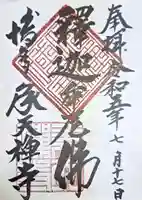 奉拝 令和五年七月十七日
釋迦牟尼佛
博多 承天禅寺